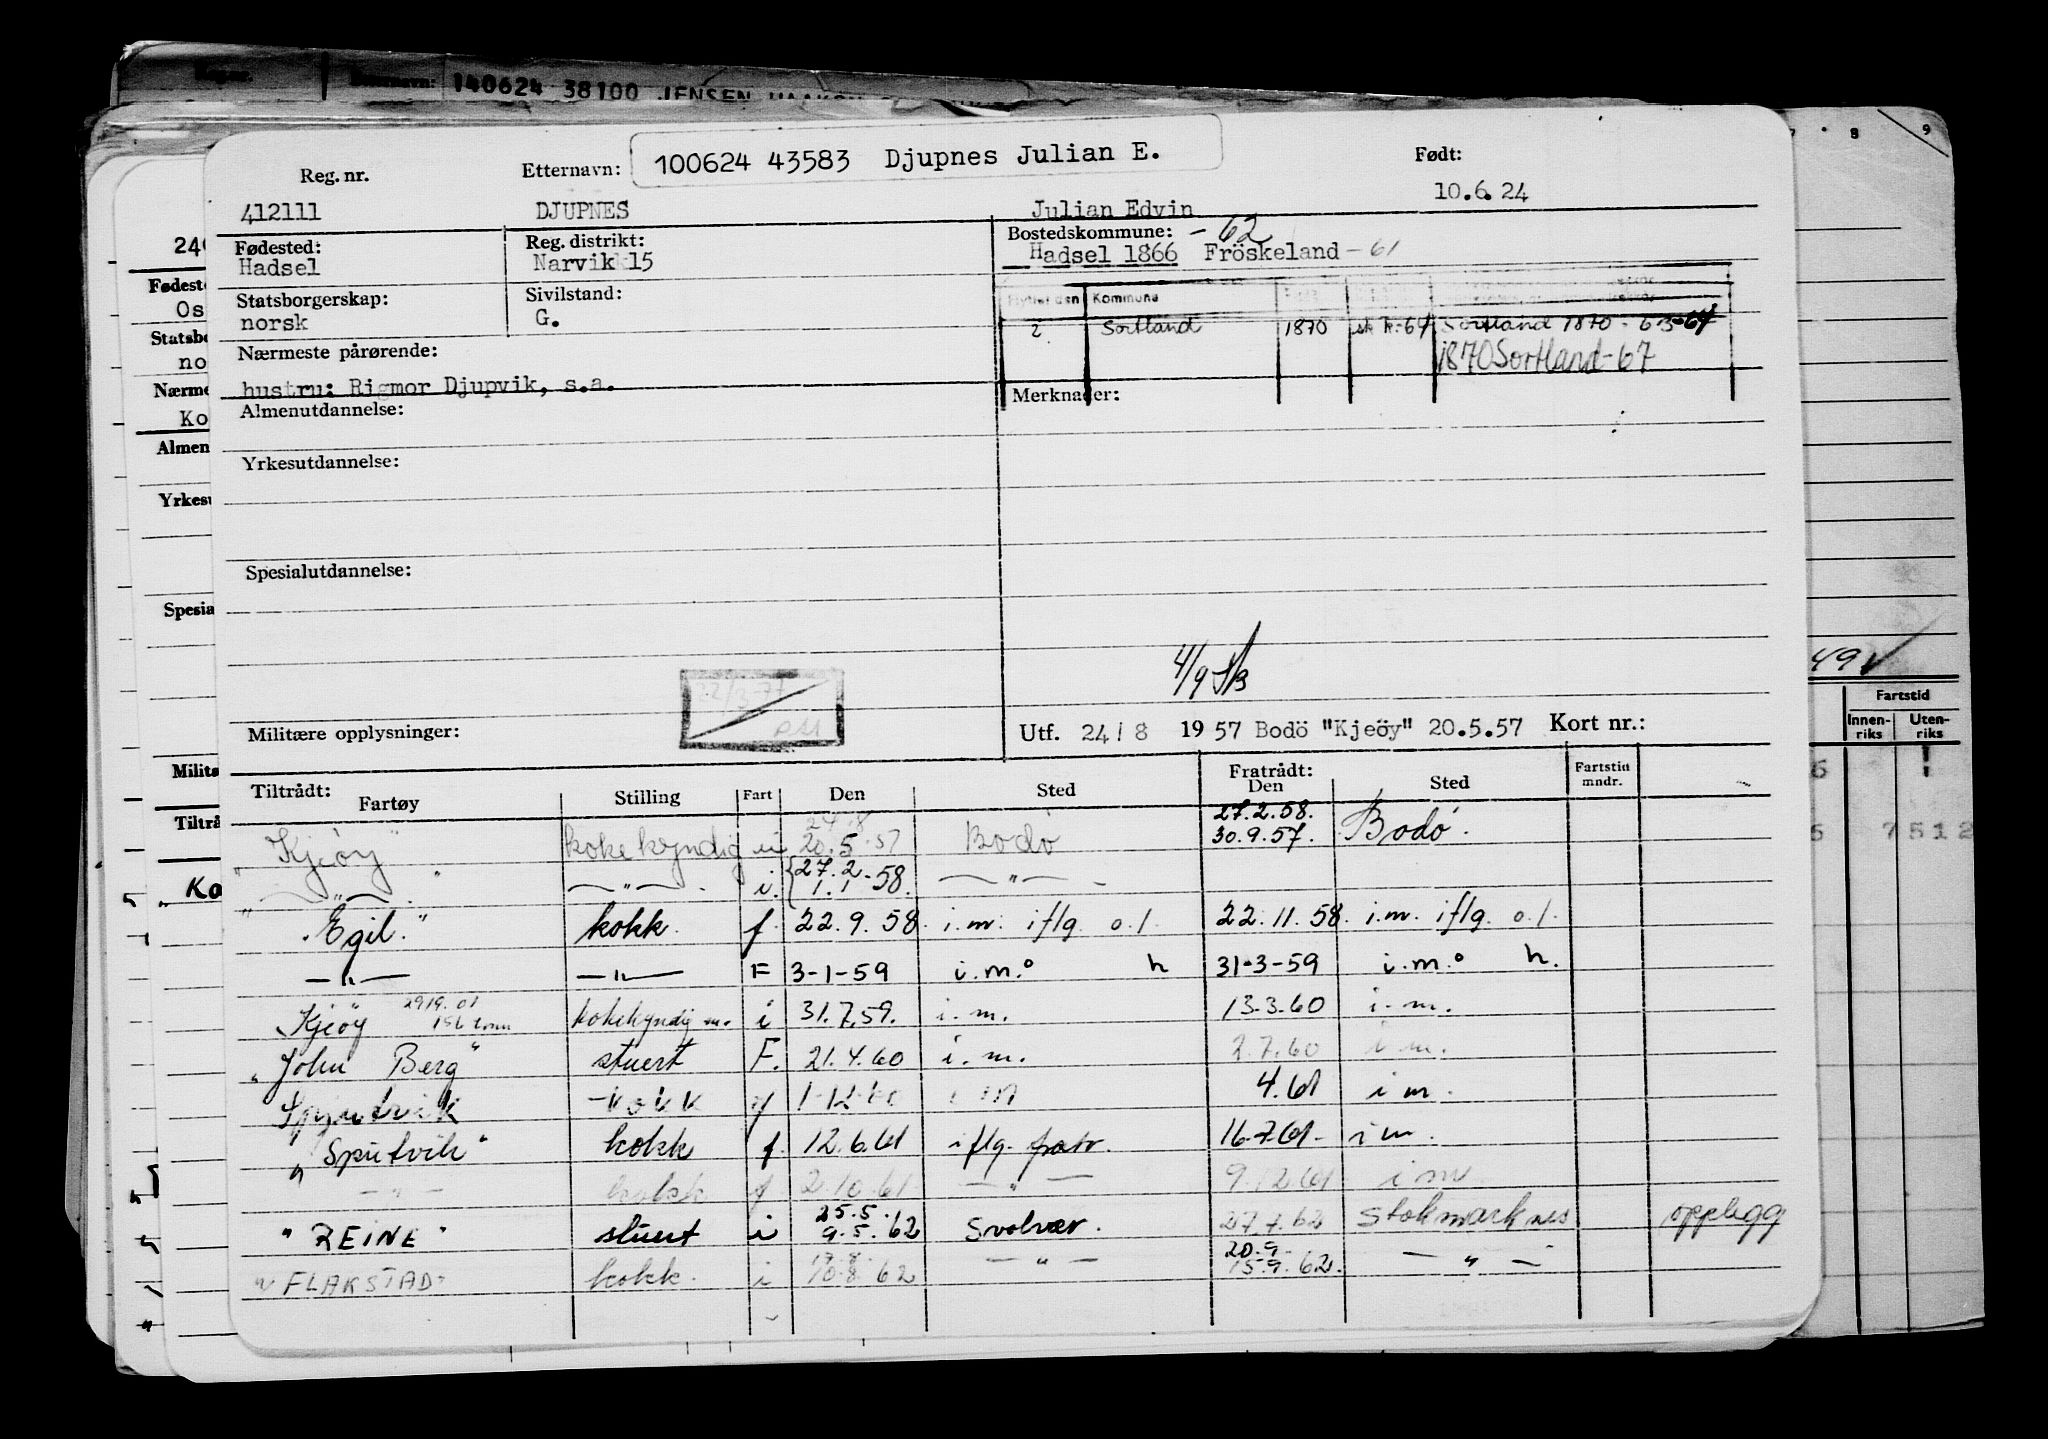 Reg. nr.
140624 38100 JENSEN HAAKON
Reg. nr. Etternavn: 100624 43583 Djupnes Julian E. Født:
412111 DJUPNES Julian Edvin 10.6.24
Fødested: Reg. distrikt: Bostedskommune: -62
Hadsel Narvik 15 Hadsel 1866 Fröskeland -61
Statsborgerskap: Sivilstand: Flyttet den Kommune
norsk G. 2 Sortland 1870 Sortland 1870 - 63-64
Nærmeste pårørende: 1870 Sortland-67
hustru: Rigmor Djupvik, s.a. Merknader:
Almenutdannelse:
Yrkesutdannelse:
Spesialutdannelse:
4/9
Militære opplysninger: Utf. 24/8 1957 Bodö "Kjeöy" 20.5.57 Kort nr.:
Tiltrådt: Fartøy Stilling Fart Den Sted Fratrådt: Den Sted Fartstid mndr.
24.8 27.2.58.
"Kjeöy" kokekyndig i 20.5.57 Bodö 30.9.57. Bodö.
— " — — " — i. 27.2.58. 1.1 — " —
"Egil." kokk. f 22.9.58. i.m. iflg. o.l. 22.11.58. i.m. iflg. o.l.
— " — — " — F 3-1-59 i.m. h 31-3-59 i.m. h.
Kjeöy 2919.01 156 tonn kokekyndig m. i 31.7.59. i.m. 13.3.60 i.m.
"John Berg" stuert F. 21.4.60 i.m. 2.7.60 i.m.
kokk f 1-12-60 4.61 i m.
"Sputvik" kokk f 12.6.61 iflg. fratr. 16.7.61. i m.
— " — kokk f 2.10.61 — " — 9.12.61 i m
25.5.
"REINE" stuert i 9.5.62 Svolvær. 27.7.62 Stokmarknes opplegg
20.9.
"FLAKSTAD" kokk. i 10.8.62 — " — 15.9.62. — " —
240
Fødeste
Os
Statsbo
no
Nærme
Ko
Almen
Yrkesu
Spesia
Militæ
Tiltrå
"Ka
8 9
49
Fartstid
Innenriks Utenriks
7 5 1 2